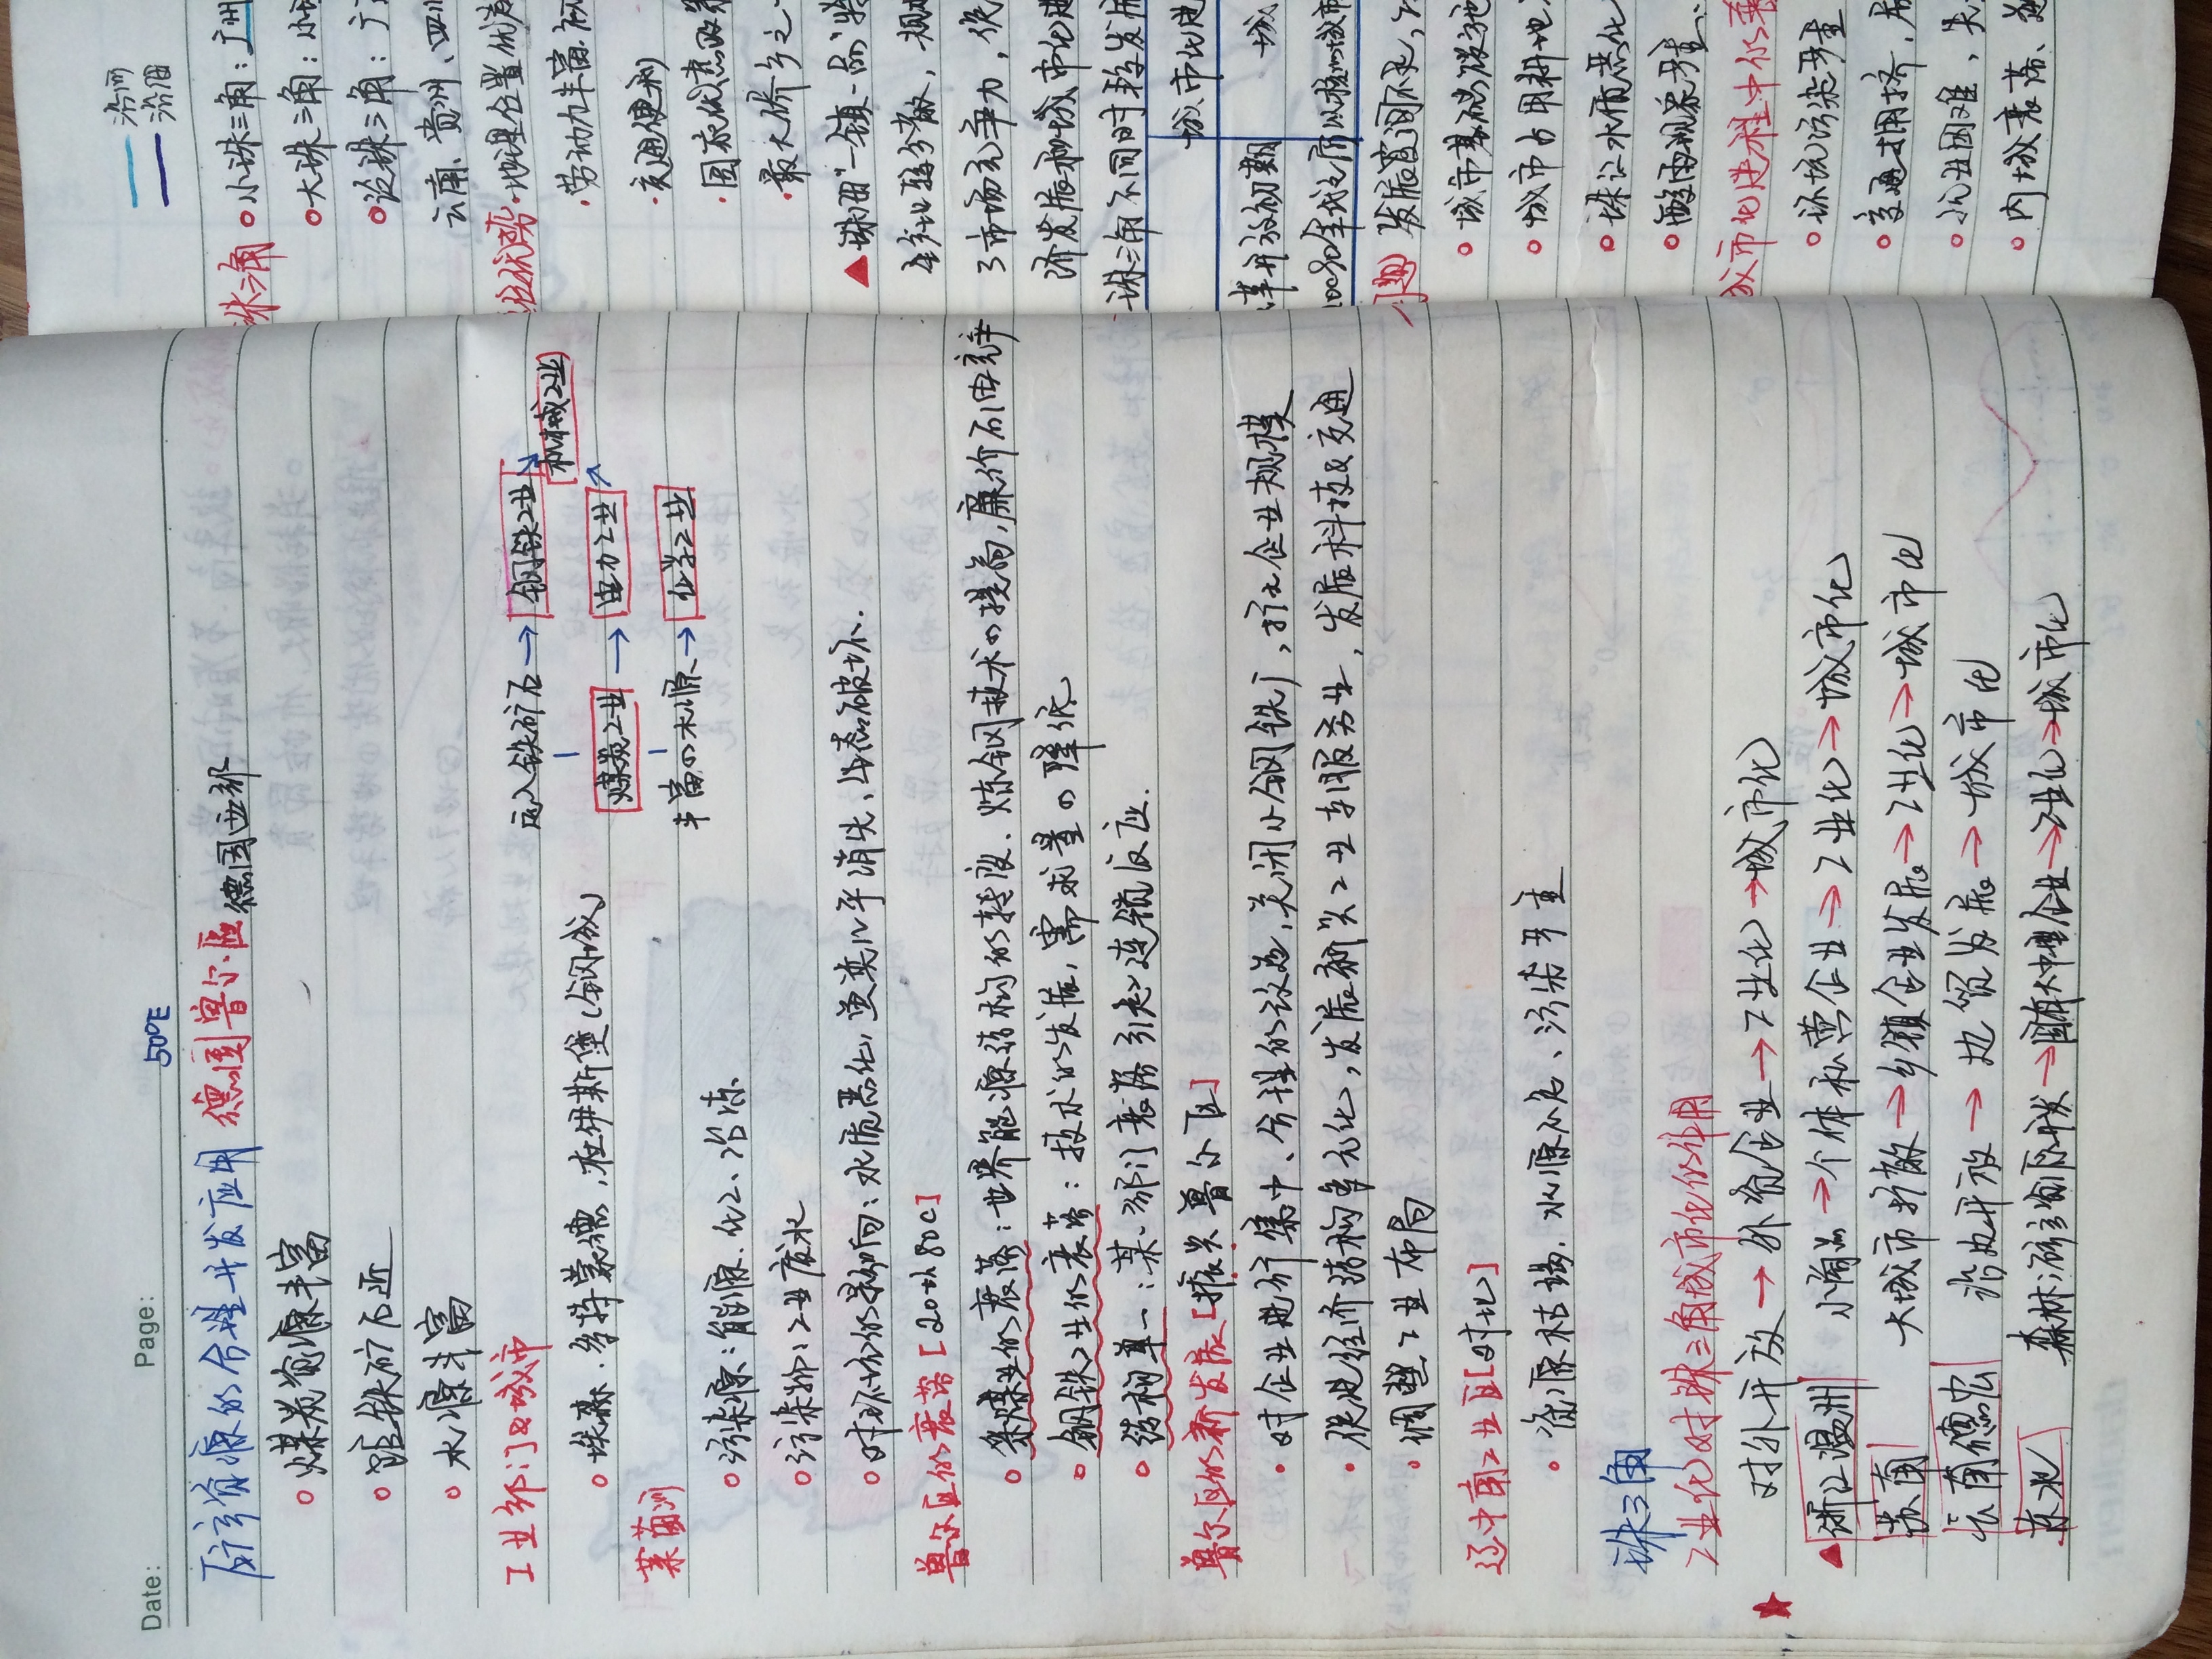 Date: Page:
50°E
矿产资源的合理开发应用 德国鲁尔区 德国西部
煤炭资源丰富
距铁矿石近
水源丰富
工业部门&城市
运入铁矿石→钢铁工业
机械工业
埃森、多特蒙德、杜伊斯堡(钢城)
煤炭工业→电力工业
莱茵河
丰富の水源→化学工业
污染源:能源、化工、冶炼
污染物:工业废水
对环境的影响:水质恶化,鱼类几乎消失,生态破坏.
鲁尔区的衰落[20th 80c]
采煤业的衰落:世界能源结构的转变、炼钢技术の提高,廉价石油竞争
钢铁工业的衰落:技术的发展,需求量の降低
结构单一:某一部门衰落引起连锁反应.
鲁尔区的新发展[振兴鲁尔区]
对企业进行集中、合理的改造,关闭小钢铁厂,扩大企业规模
促进经济结构多元化,发展新兴工业与服务业,发展科技&交通
调整工业布局
辽中南工业区[对比]
资源枯竭、水源不足、污染严重
珠三角
工业化对珠三角城市化的作用
对外开放→外资企业→工业化→城市化
浙江温州 小商品→个体私营企业→工业化→城市化
苏南 大城市扩散→乡镇企业发展→工业化→城市化
云南德宏 沿边开放→边贸发展→城市化
东北 森林矿产资源开发→国有大中型企业→工业化→城市化
沿河
沿海
珠三角 小珠三角:广州
大珠三角:小珠
泛珠三角:广
云南、贵州、四川
区位优势·地理位置优
·劳动力丰富
·交通便利
·国家优惠政策
·最大侨乡之一
▲珠海"一镇一品"特
业较分散,规
了市场竞争力,
济发展和城市化进
珠三角不同时期发展
城市化进
改革开放初期 城
以核心城市
问题 发展空间不足,
城市基础设施
城市占用耕地
珠江水质恶化
酸雨现象严重、
城市化进程中的
环境污染严重
交通拥挤,居
就业困难,失
内城衰落、